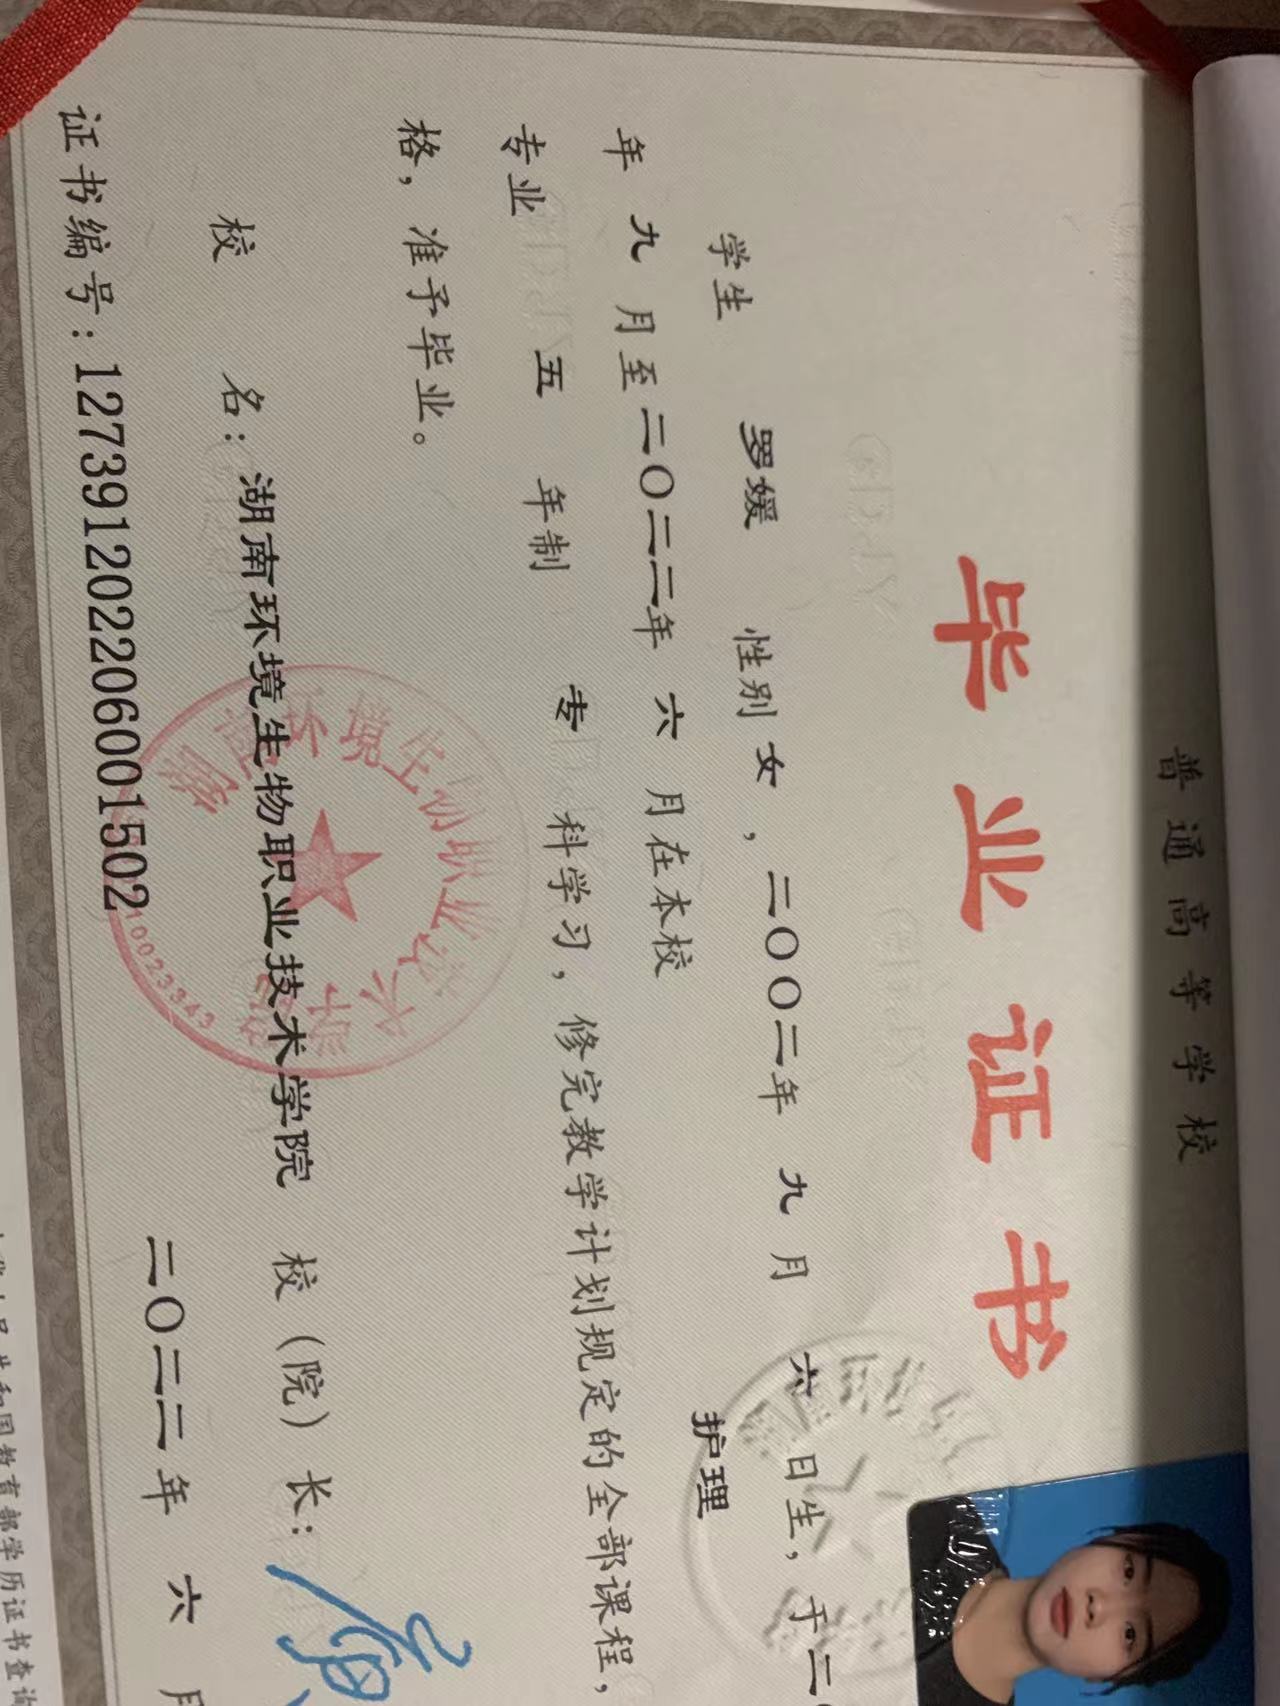 普通高等学校
毕业证书
学生 罗媛 性别 女，二〇〇二年 九 月 六 日生，于二
年 九 月至二〇二二年 六 月在本校 护理
专业 五 年制 专 科学习，修完教学计划规定的全部课程，
格，准予毕业。
校 名：湖南环境生物职业技术学院 校（院）长：
二〇二二年 六 月
证书编号：127391202206001502
湖南环境生物职业技术学院
10023343
人民共和国教育部学历证书查询